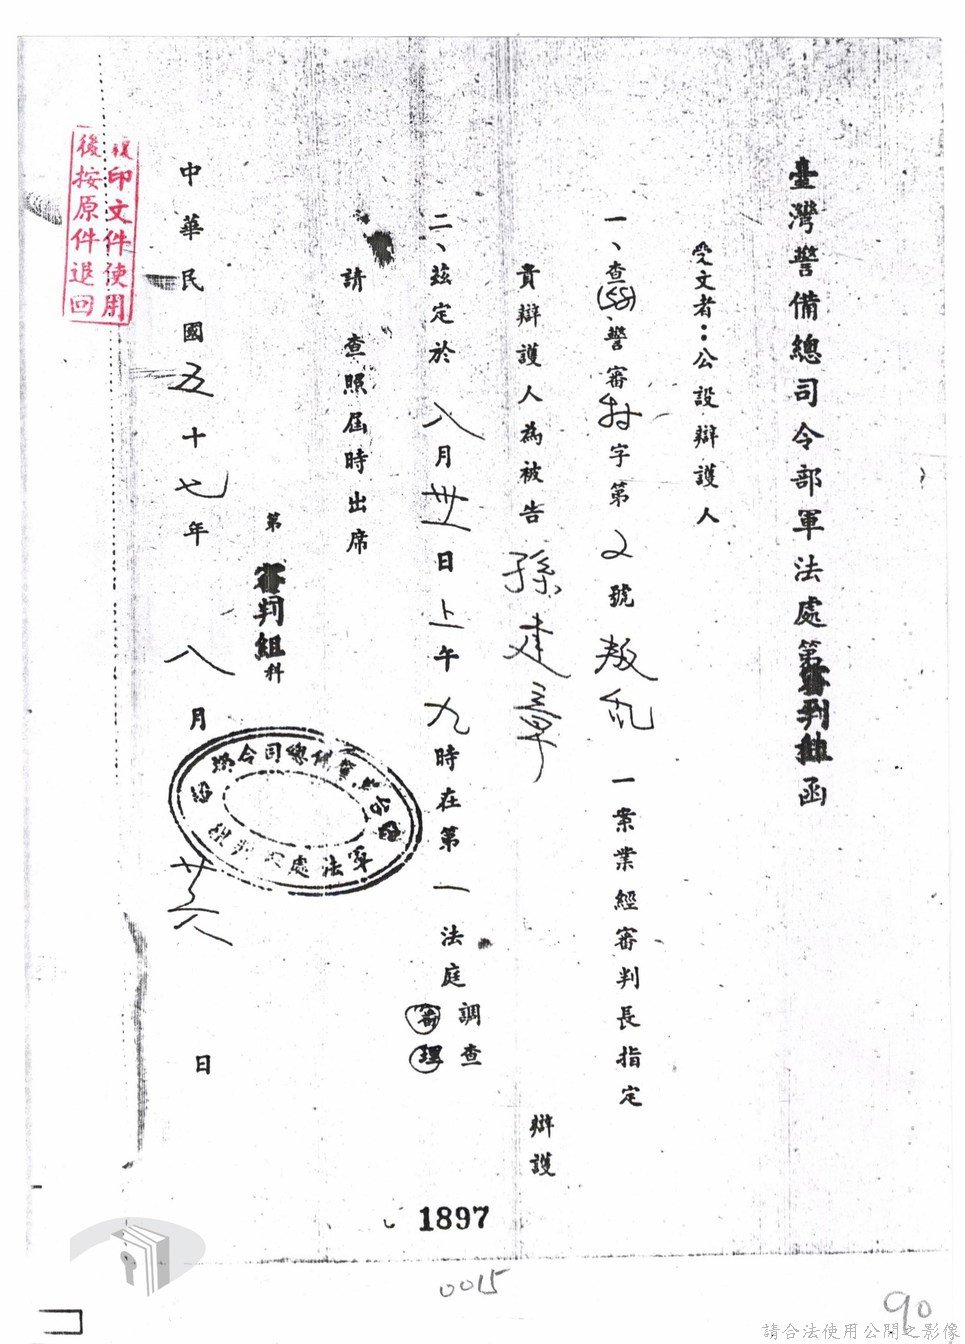 臺灣警備總司令部軍法處第審判組函
受文者：公設辯護人
一、查(55)警審特字第2號叛亂一案業經審判長指定
貴辯護人為被告孫建章辯護
二、茲定於八月卅一日上午九時在第一法庭調查審理
請查照屆時出席
第審判組科
中華民國五十七年八月 日
複印文件使用
後按原件退回
1897
0015
90
請合法使用公開之影像